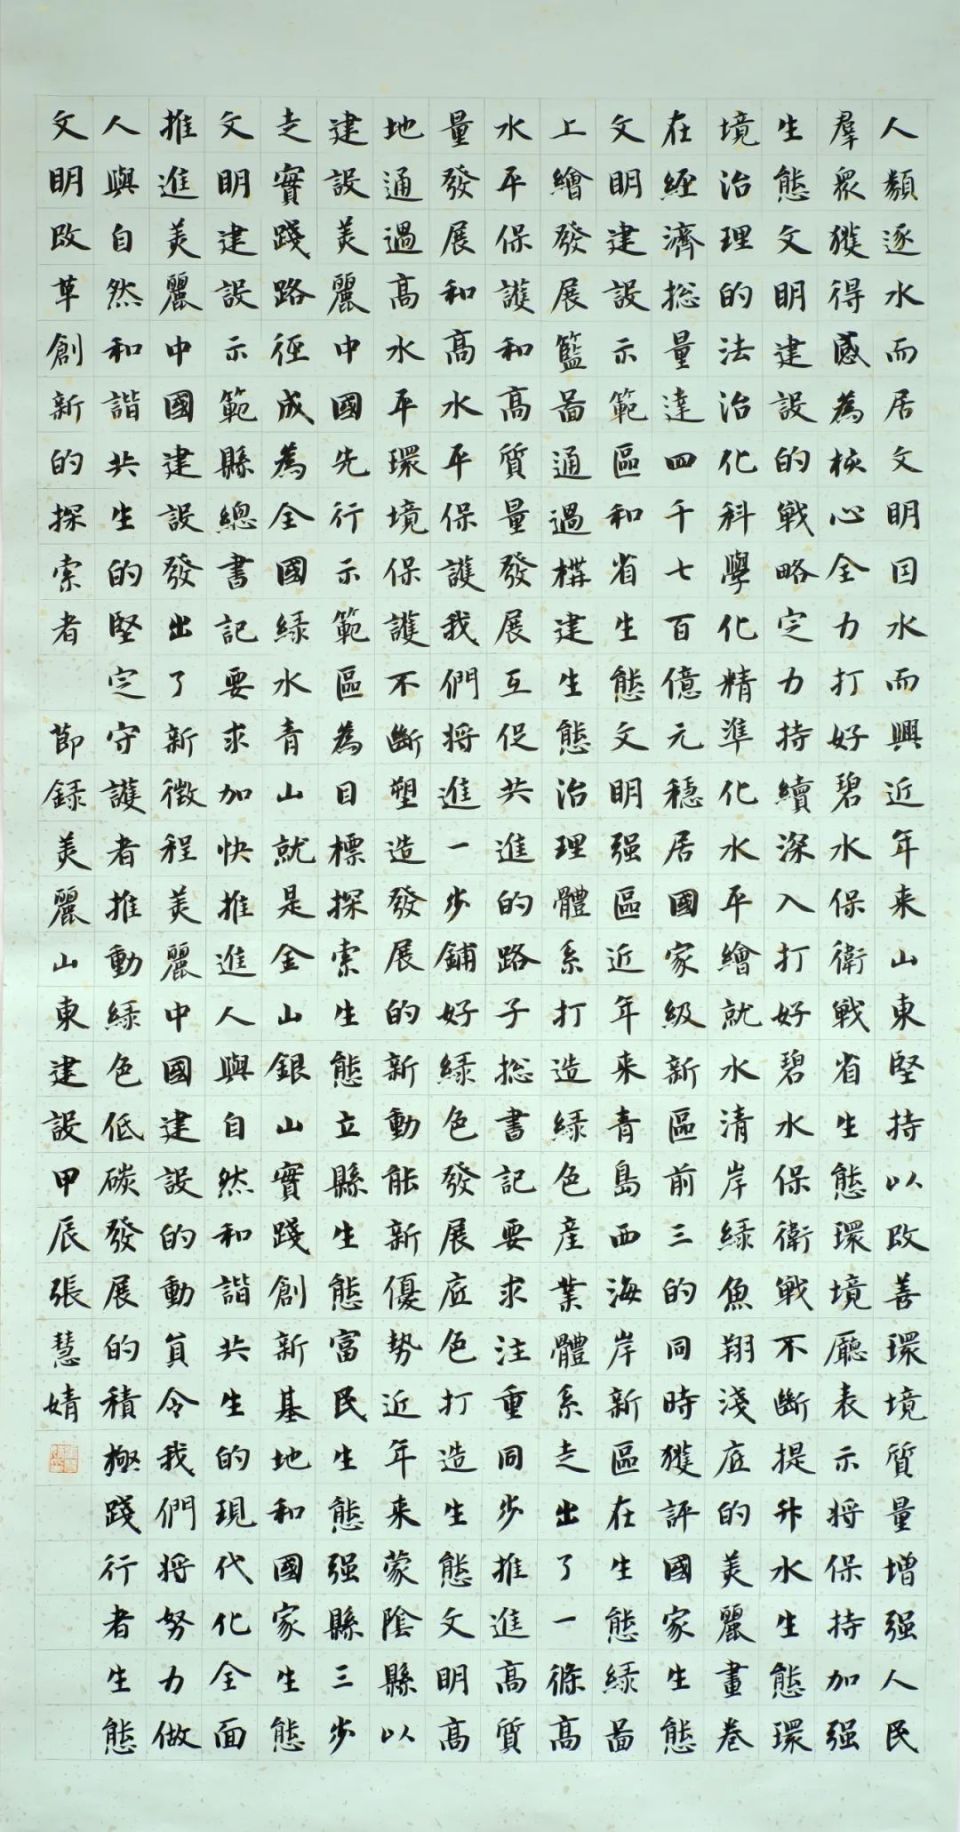 人類逐水而居文明因水而興近年来山東堅持以改善環境質量增强人民
羣衆獲得感為核心全力打好碧水保衛戰省生態環境廳表示將保持加强
生態文明建設的戰略定力持續深入打好碧水保衛戰不斷提升水生態環
境治理的法治化科學化精準化水平繪就水清岸綠魚翔淺底的美麗畫卷
在經濟総量達四千七百億元穩居國家級新區前三的同時獲評國家生態
文明建設示範區和省生態文明强區近年来青島西海岸新區在生態綠啚
上繪發展籃啚通過構建生態治理體系打造綠色産業體系走出了一條高
水平保護和高質量發展互促共進的路子総書記要求注重同步推進高質
量發展和高水平保護我們将進一步鋪好綠色發展底色打造生態文明高
地通過高水平環境保護不斷塑造發展的新動能新優势近年来蒙陰縣以
建設美麗中國先行示範區為目標探索生態立縣生態富民生態强縣三步
走實踐路徑成為全國綠水青山就是金山銀山實踐創新基地和國家生態
文明建設示範縣總書記要求加快推進人與自然和諧共生的現代化全面
推進美麗中國建設發出了新徵程美麗中國建設的動員令我們將努力做
人與自然和諧共生的堅定守護者推動綠色低碳發展的積極踐行者生態
文明改革創新的探索者 節録美麗山東建設甲辰張慧婧